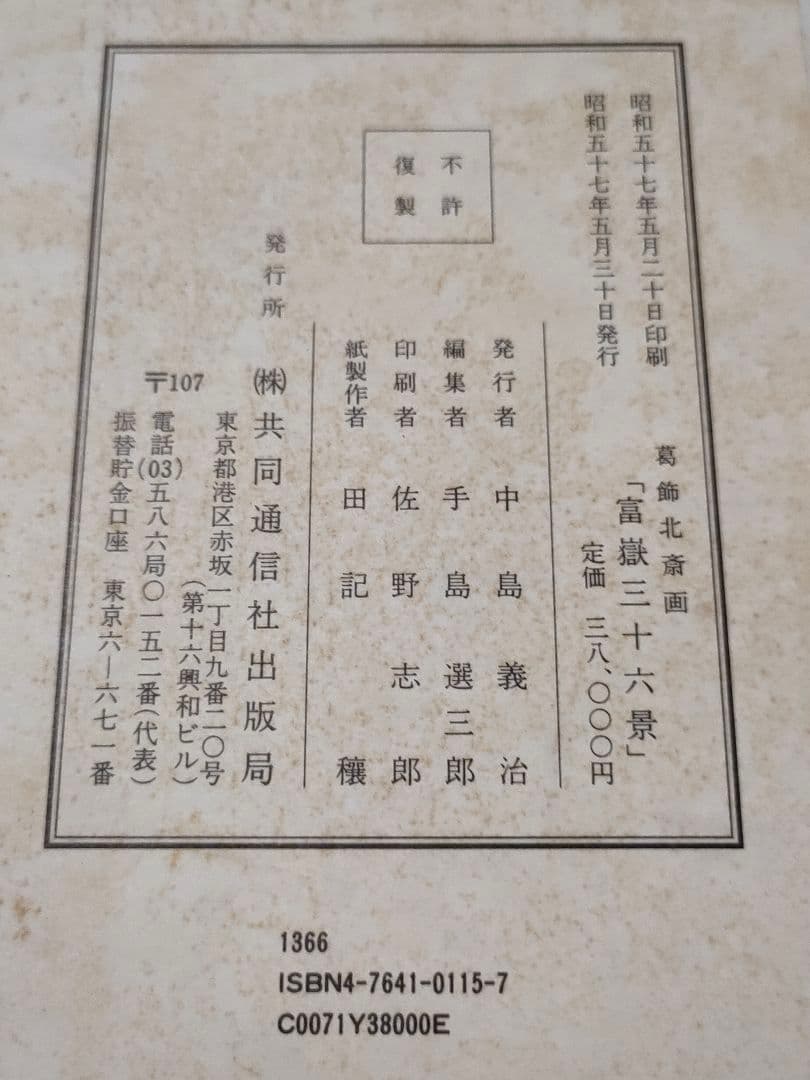 昭和五十七年五月二十日印刷
昭和五十七年五月三十日発行
葛飾北斎画
「富嶽三十六景」
定価 三八、〇〇〇円
発行者 中島義治
編集者 手島選三郎
印刷者 佐野志郎
紙製作者 田記穰
不許
復製
発行所 ㈱共同通信社出版局
東京都港区赤坂一丁目九番二〇号
(第十六興和ビル)
〒107
電話(03)五八六局〇一五二番(代表)
振替貯金口座 東京六―六七一番
1366
ISBN4-7641-0115-7
C0071Y38000E